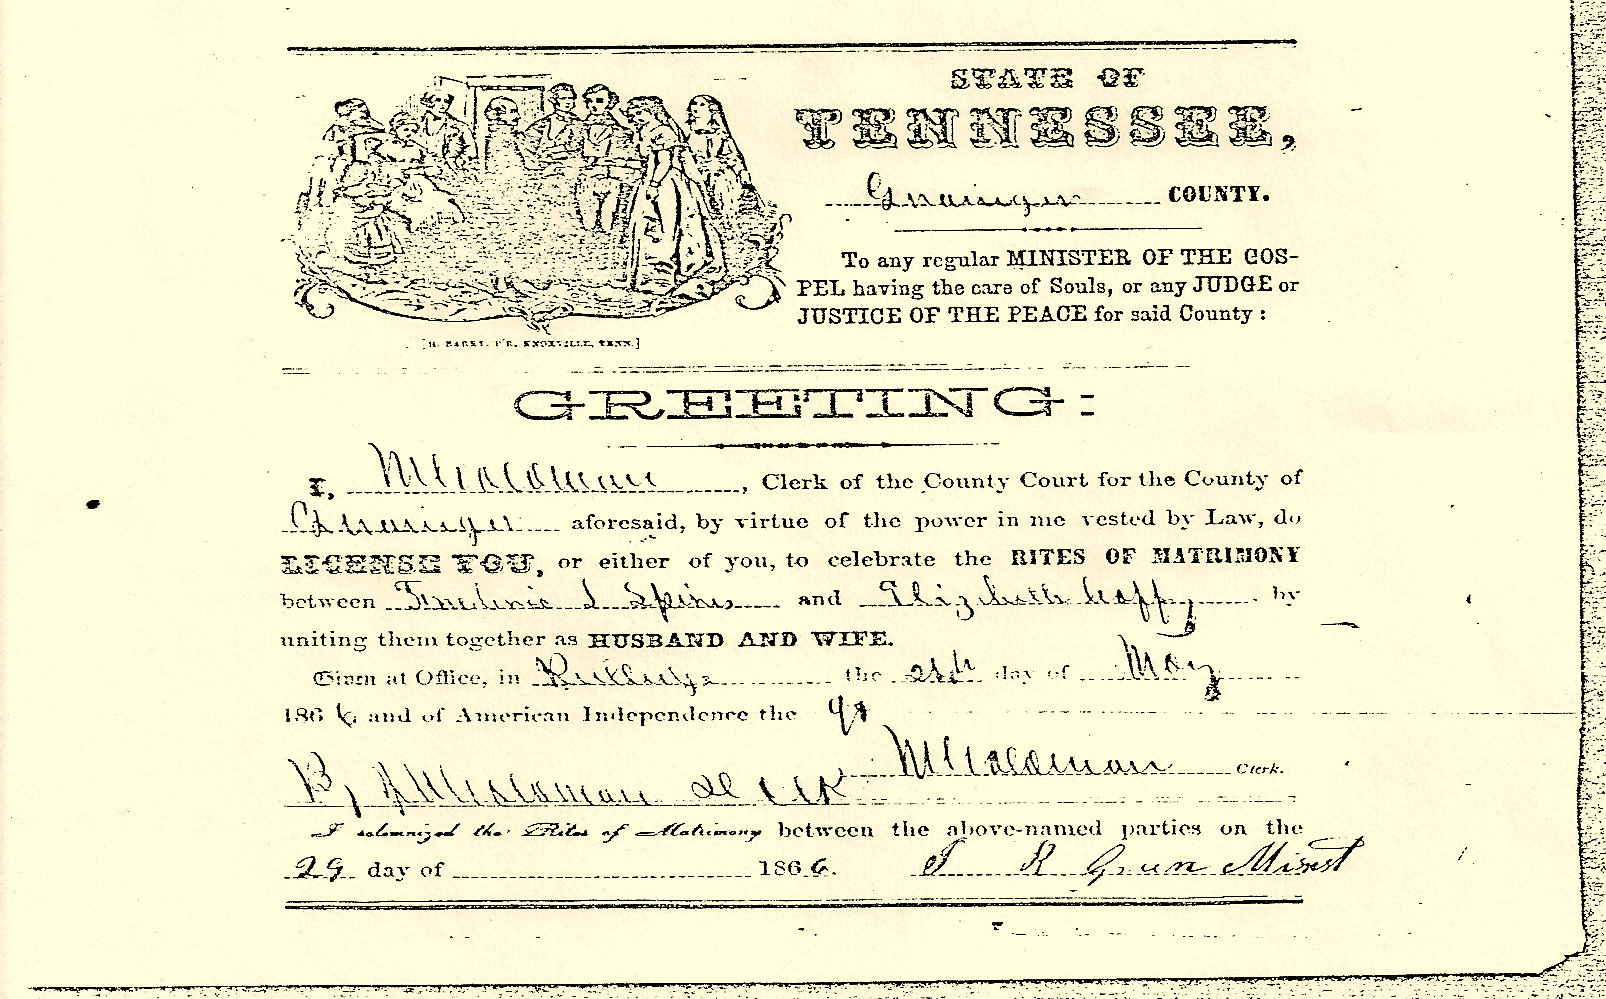 STATE OF
TENNESSEE,
Grainger COUNTY.
To any regular MINISTER OF THE GOS-
PEL having the care of Souls, or any JUDGE or
JUSTICE OF THE PEACE for said County :
[H. BARRY, P'R, KNOXVILLE, TENN.]
GREETING:
I, , Clerk of the County Court for the County of
Grainger aforesaid, by virtue of the power in me vested by Law, do
LICENSE YOU, or either of you, to celebrate the RITES OF MATRIMONY
between and Elizabeth by
uniting them together as HUSBAND AND WIFE.
Given at Office, in Rutledge the day of May
1866 and of American Independence the
Clerk.
By
I solemnized the Rites of Matrimony between the above-named parties on the
29 day of 1866. Minst